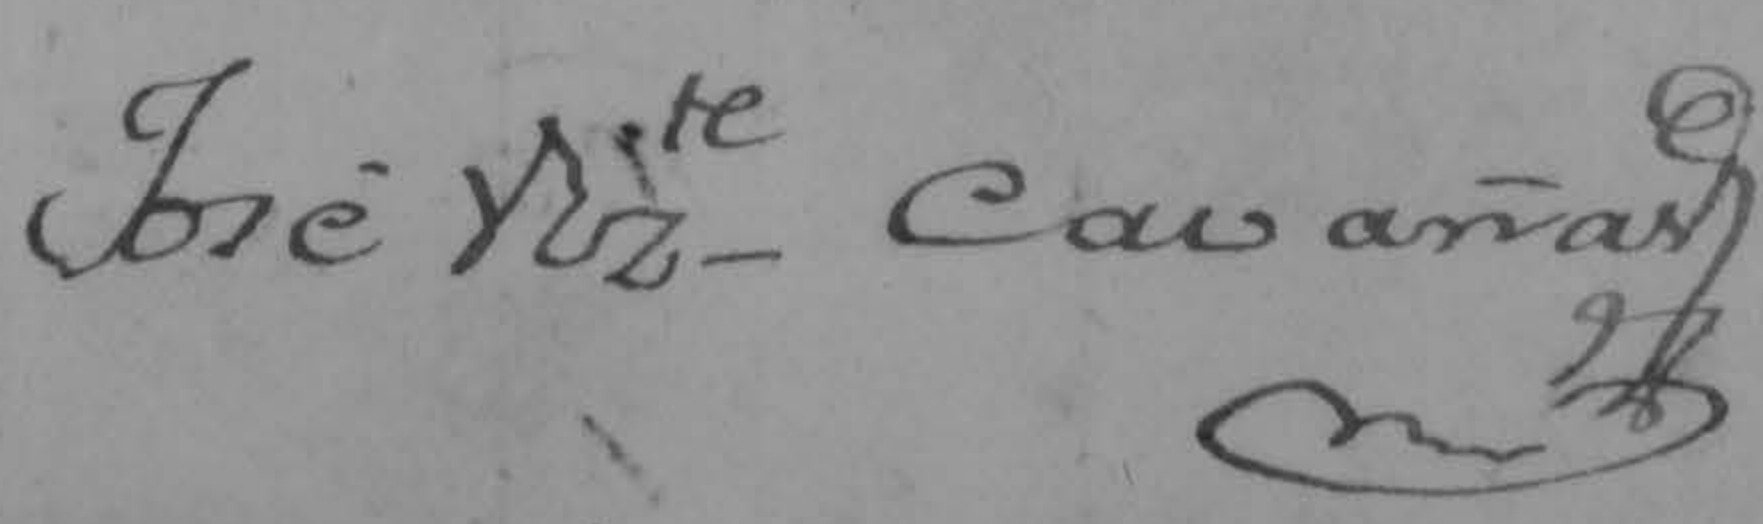 José Viz.te Cavañas